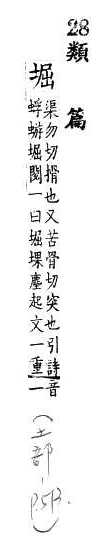 28類
篇
堀 渠勿切搰也又苦骨切突也引詩
蜉蝣堀閱一曰堀堁塵起文一重音一
(土部-P5B.)